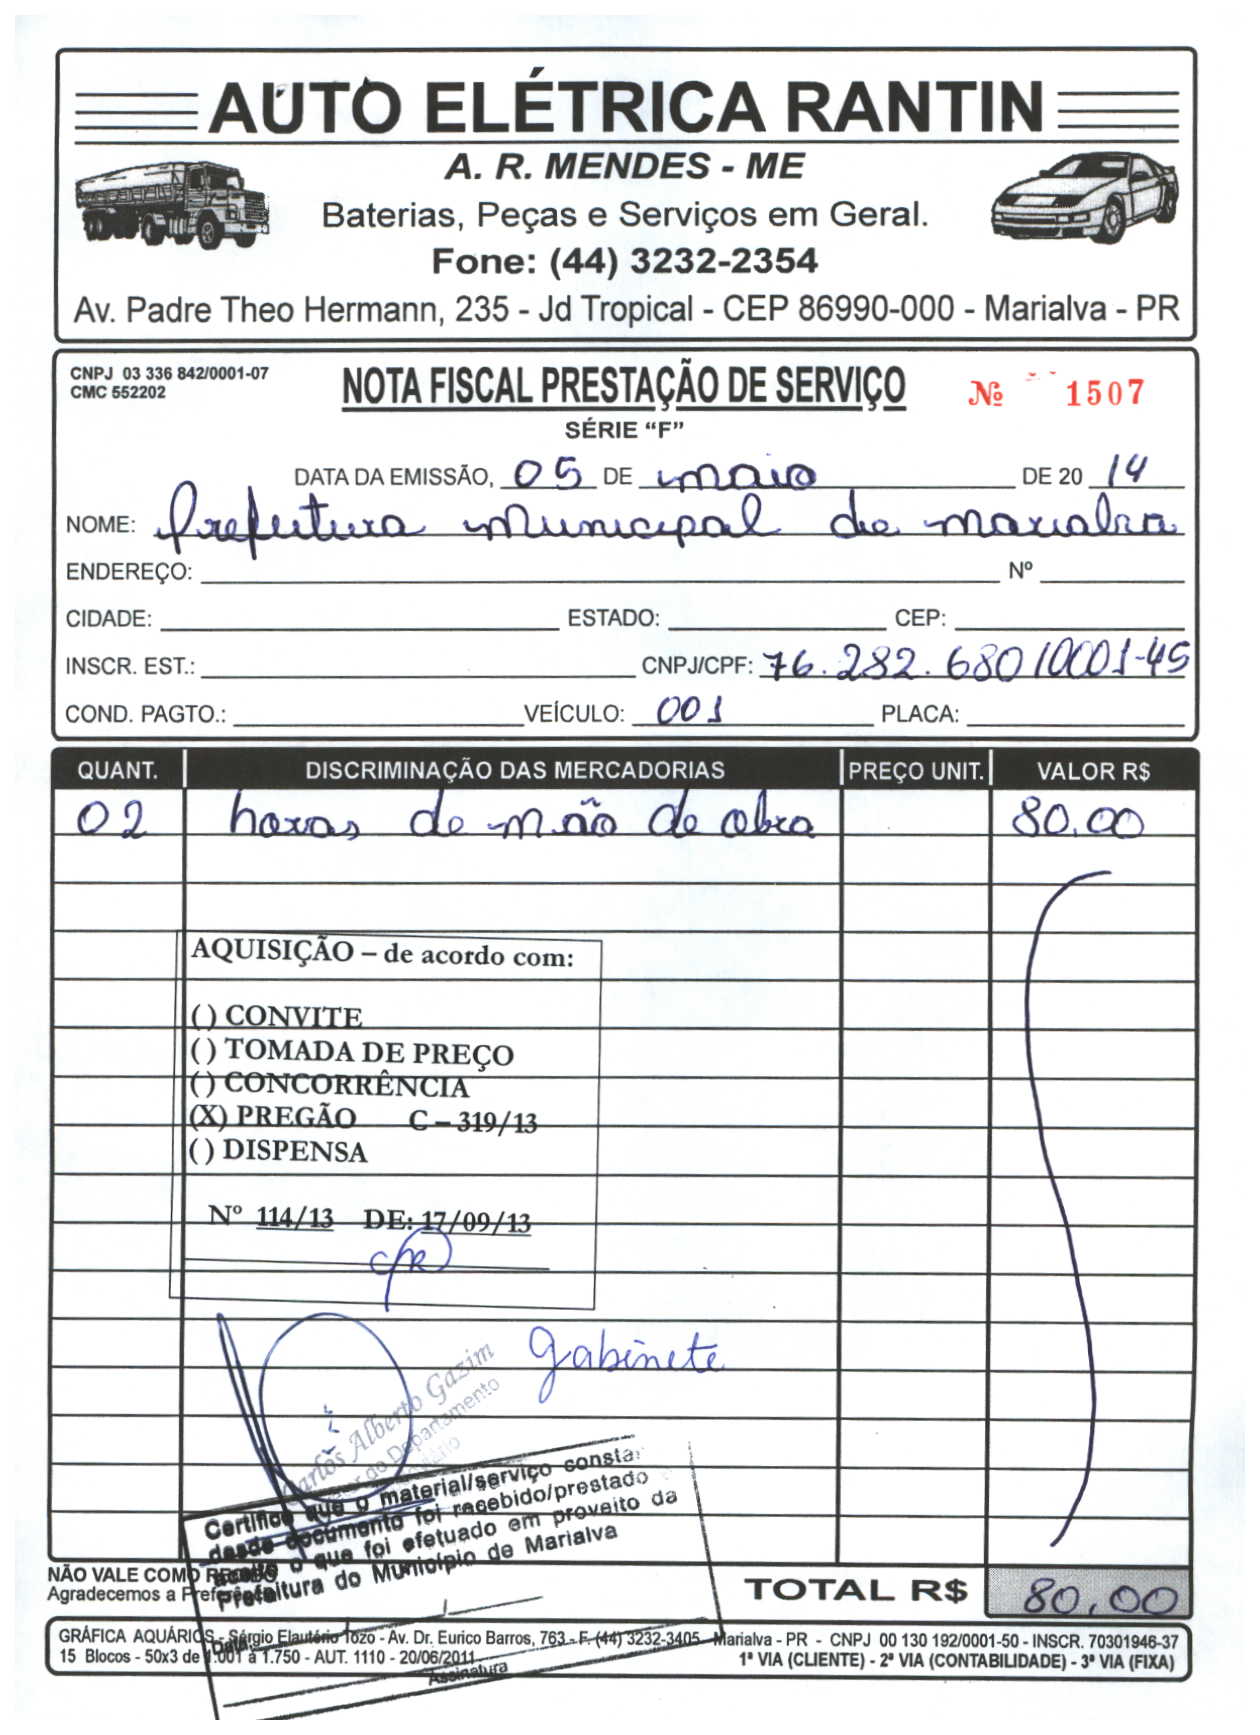 AUTO ELÉTRICA RANTIN
A. R. MENDES - ME
Baterias, Peças e Serviços em Geral.
Fone: (44) 3232-2354
Av. Padre Theo Hermann, 235 - Jd Tropical - CEP 86990-000 - Marialva - PR
CNPJ 03 336 842/0001-07
CMC 552202
NOTA FISCAL PRESTAÇÃO DE SERVIÇO
Nº 1507
SÉRIE “F”
DATA DA EMISSÃO, 05 DE maio DE 20 14
NOME: Prefeitura municipal de marialva
ENDEREÇO: Nº
CIDADE: ESTADO: CEP:
INSCR. EST.: CNPJ/CPF: 76.282.680/0001-45
COND. PAGTO.: VEÍCULO: 001 PLACA:
QUANT. DISCRIMINAÇÃO DAS MERCADORIAS PREÇO UNIT. VALOR R$
02 horas de mão de obra 80,00
AQUISIÇÃO – de acordo com:
( ) CONVITE
( ) TOMADA DE PREÇO
( ) CONCORRÊNCIA
(X) PREGÃO C – 319/13
( ) DISPENSA
Nº 114/13 DE: 17/09/13
Gabinete
Carlos Alberto Gazim
do Departamento
Certifico que o material/serviço consta
deste documento foi recebido/prestado
aceito o que foi efetuado em proveito da
Prefeitura do Município de Marialva
Data
Assinatura
NÃO VALE COMO RECIBO
Agradecemos a Preferência
TOTAL R$ 80,00
GRÁFICA AQUÁRIOS - Sérgio Elautério Tozo - Av. Dr. Eurico Barros, 763 - F. (44) 3232-3405 - Marialva - PR - CNPJ 00 130 192/0001-50 - INSCR. 70301946-37
15 Blocos - 50x3 de 1.001 a 1.750 - AUT. 1110 - 20/06/2011 1ª VIA (CLIENTE) - 2ª VIA (CONTABILIDADE) - 3ª VIA (FIXA)